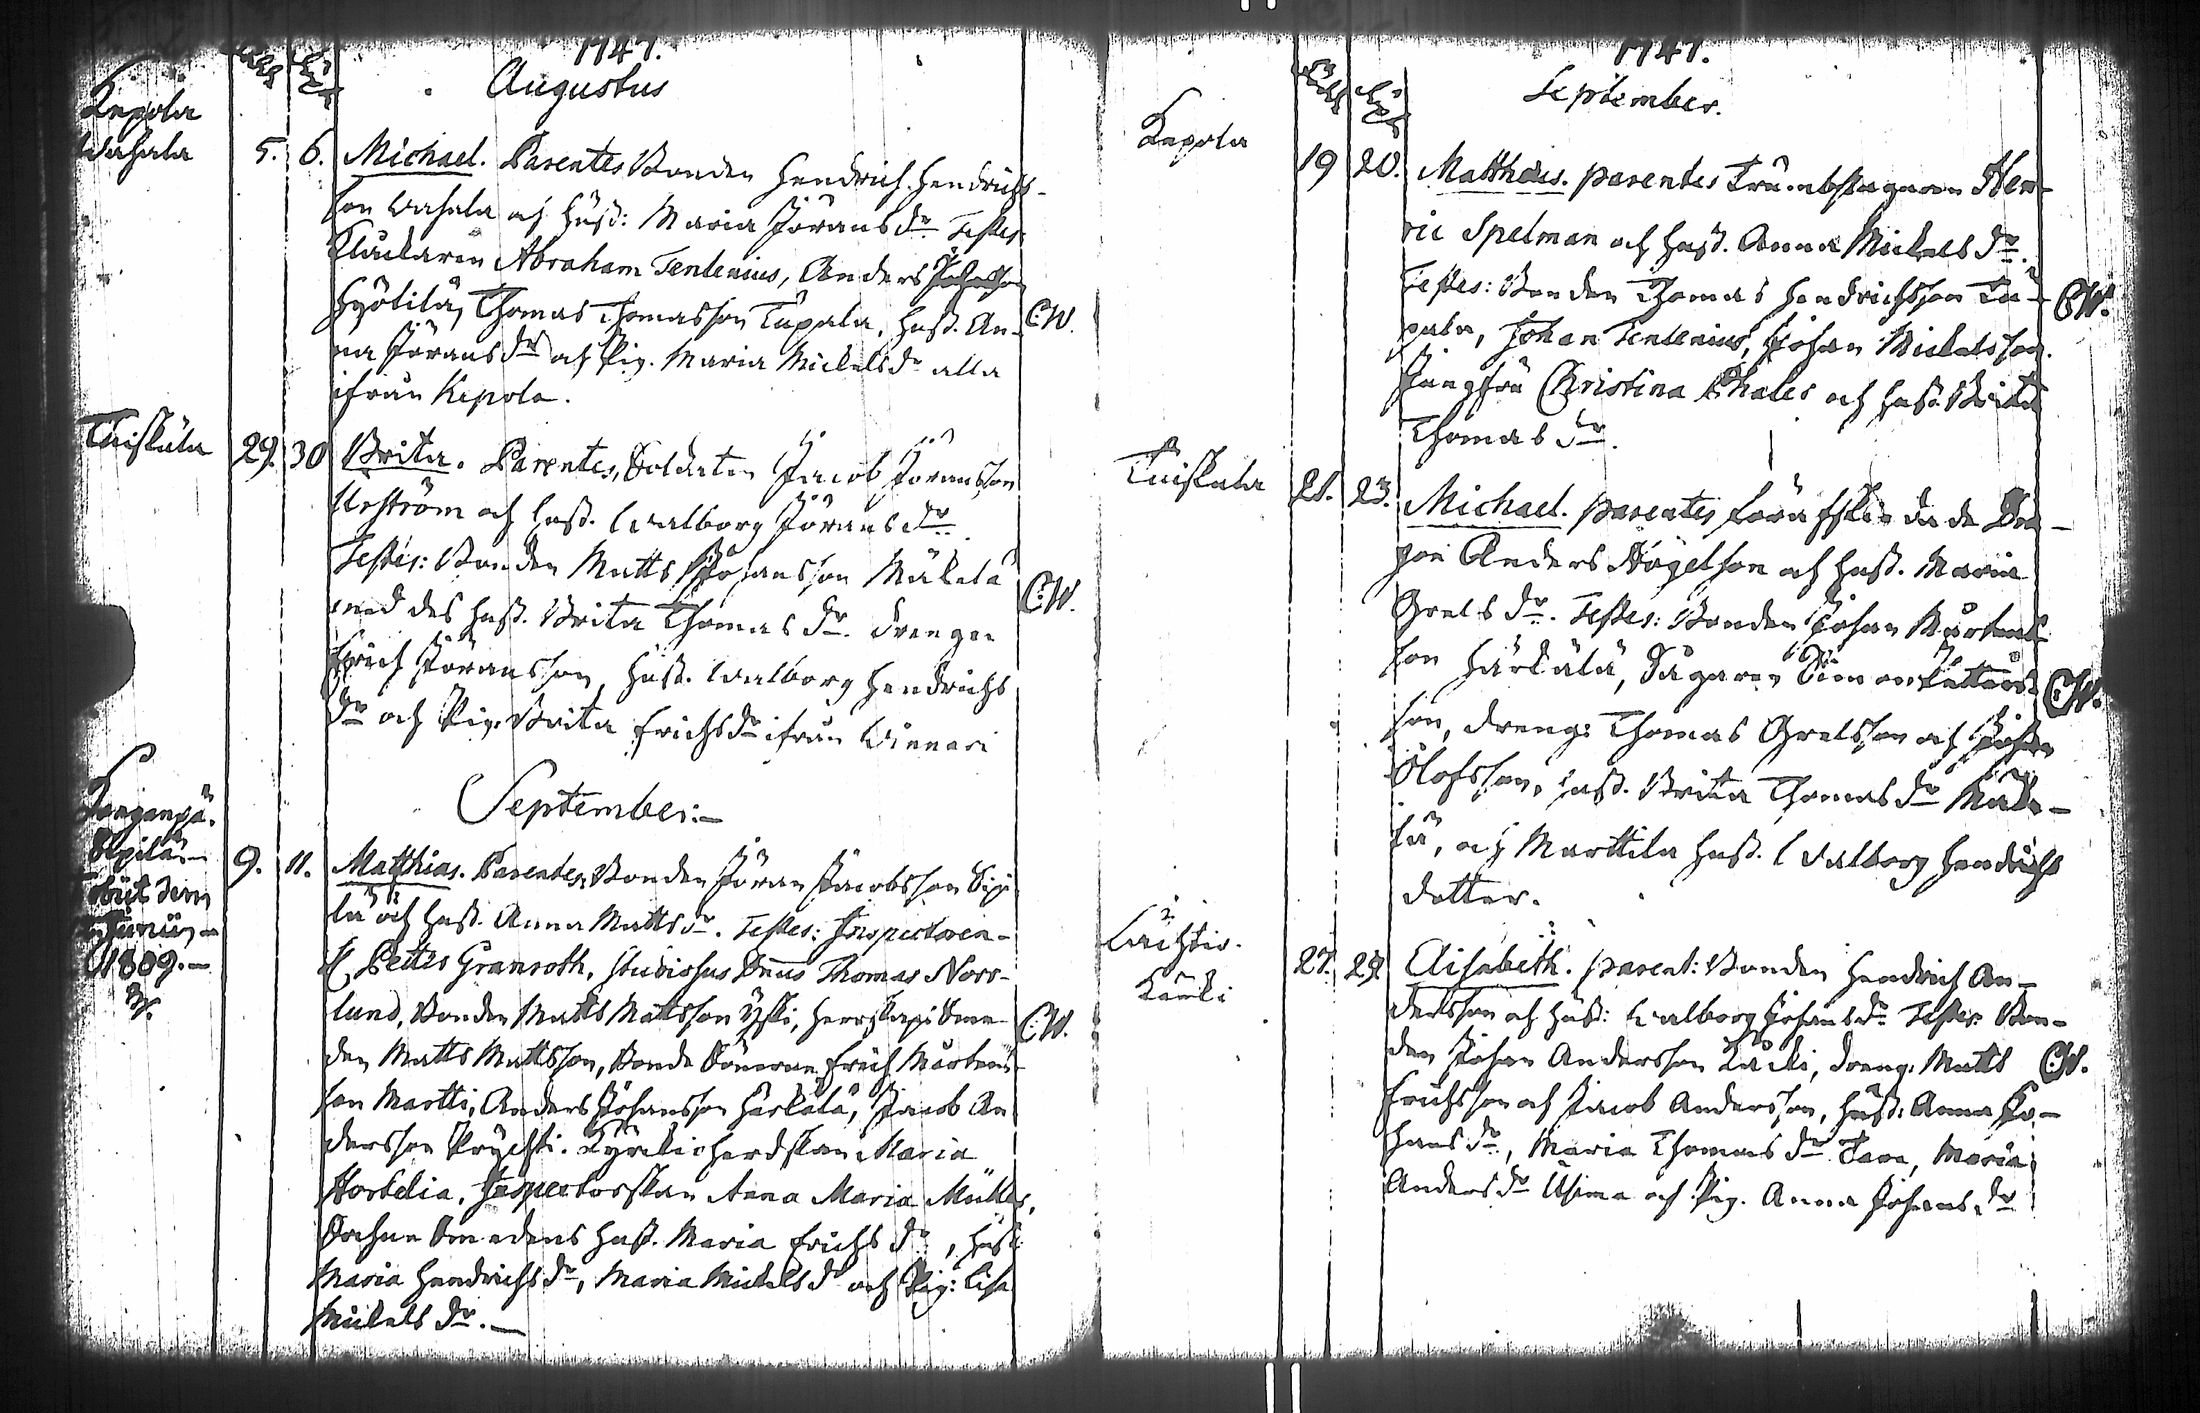 1747.
Augustus
Kepola
Wahala
5. 6. Michael. Parentes Bonden Hendrich Hendrichs-
son Wahala och Hust: Maria Jöransdr Testes
Cluckaren Abraham Tentenius, Anders Johansson
Hyötilä, Thomas Thomasson Tupala, Hust. An-
C.W.
na Jöransdr och Pig. Maria Mickelsdr alla
ifrån Kepola.
Tuiskula
29. 30 Brita. Parentes, Soldaten Jacob Jöransson
ström och Hust. Walborg Jöransdr.
Testes: Bonden Matts Johansson Mäkelä
C.W.
med des Hust. Brita Thomasdr. Drengen
Erich Jöransson, Hust. Walborg Hendrichs
dr och Pig. Brita Erichsdr ifrån Winnari
September:
Sipilä
död den
Junii
1809.
9. 11. Matthias. Parentes, Bonden Jöran Jacobsson Sipi-
lä och Hust. Anna Mattsdr. Testes: Inspectoren
H. Petter Granroth, Studiosus Dnus Thomas Norr-
lund, Bonden Matts Mattsson Yski, Herrskaps Sme-
C.W.
den Matts Mattsson, Bonde Sönerne Erich Mårtens-
son Martti, Anders Johansson Härkälä, Jacob An
dersson Prychti. Kyrckioherdskan Maria
Hortelia, Inspectorskan Anna Maria Müller,
Smedens Hust. Maria Erichsdr, Hust:
Maria Hendrichsdr, Maria Mickelsdr och Pig: Lisa
Mickelsdr.
1747.
September.
Kepola
19 20. Matthæus. parentes Trumbslagaren Hen-
ric Spelman och Hust. Anna Mickelsdr.
Testes: Bonden Thomas Hendrichsson Tu-
C.W.
pala, Johan Tentenius, Johan Mickelsson.
Jungfru Christina Phales och Hust. Brita
Thomasdr.
Tuiskula
21. 23. Michael. parentes förafskedade Dra-
gon Anders Högelson och Hust. Maria
Grelsdr. Testes: Bonden Johan Mårtens-
son Härkälä, Sågaren Simon Petters-
C.W.
son, Dreng: Thomas Grelsson och Johan
Olofsson, Hust. Brita Thomasdr Mäke-
lä, och Marttila Hust. Walborg Hendrichs
dotter.
Kauki
27. 29. Elisabeth. parent: Bonden Hendrich An-
dersson och Hust: Walborg Johansdr Testes: Bon-
den Johan Andersson Kauki, Dreng. Matts
C.W.
Erichsson och Jacob Andersson, Hust: Anna Jo-
hansdr, Maria Thomasdr Tava, Maria
Andersdr Usima och Pig. Anna Johansdr